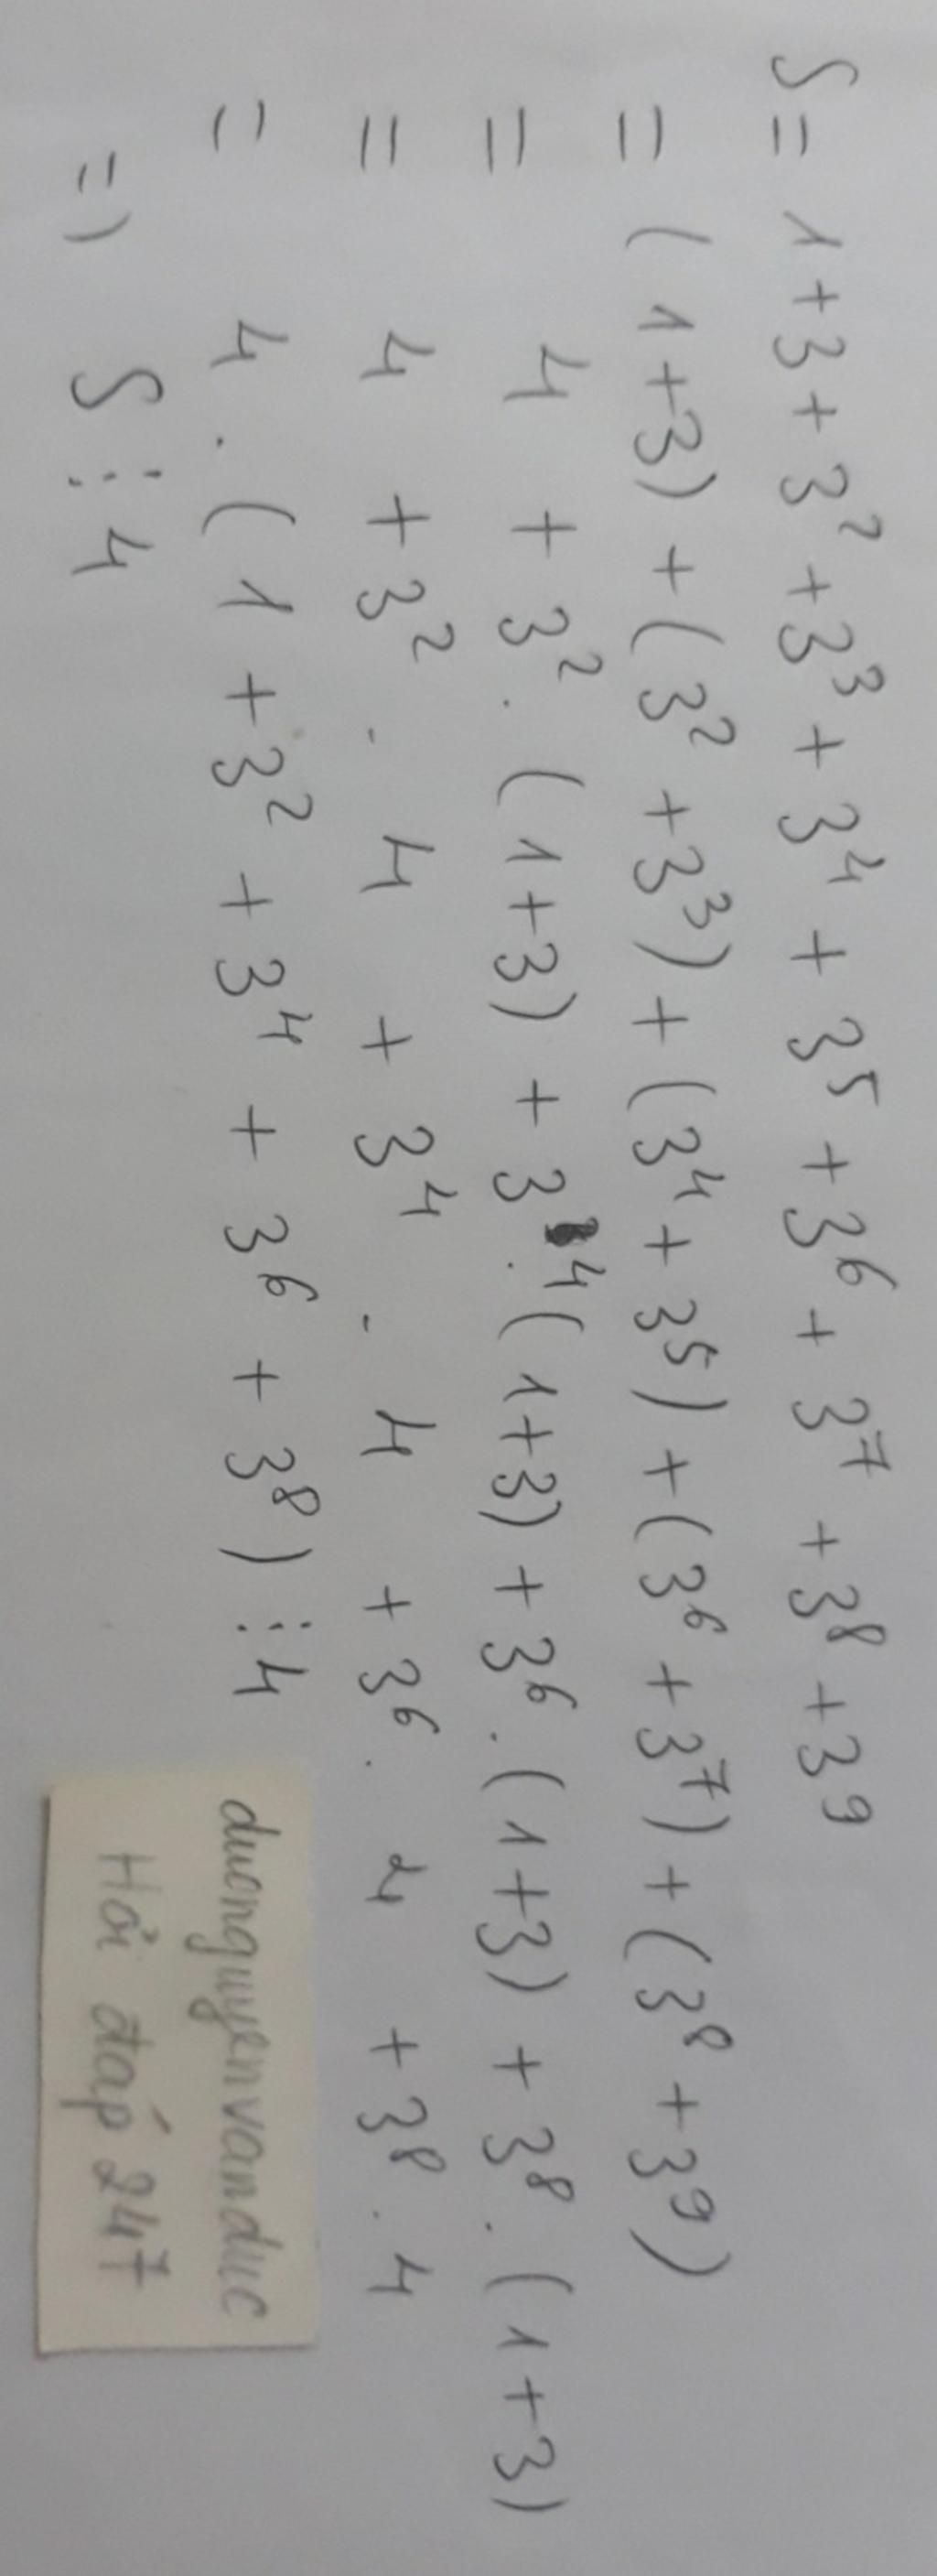 S = 1 + 3 + 3² + 3³ + 3⁴ + 3⁵ + 3⁶ + 3⁷ + 3⁸ + 3⁹
= (1 + 3) + (3² + 3³) + (3⁴ + 3⁵) + (3⁶ + 3⁷) + (3⁸ + 3⁹)
= 4 + 3² . (1 + 3) + 3⁴ . (1 + 3) + 3⁶ . (1 + 3) + 3⁸ . (1 + 3)
= 4 + 3² . 4 + 3⁴ . 4 + 3⁶ . 4 + 3⁸ . 4
= 4 . (1 + 3² + 3⁴ + 3⁶ + 3⁸) ⋮ 4
=) S ⋮ 4
duonguyenvanduc
Hỏi đáp 247